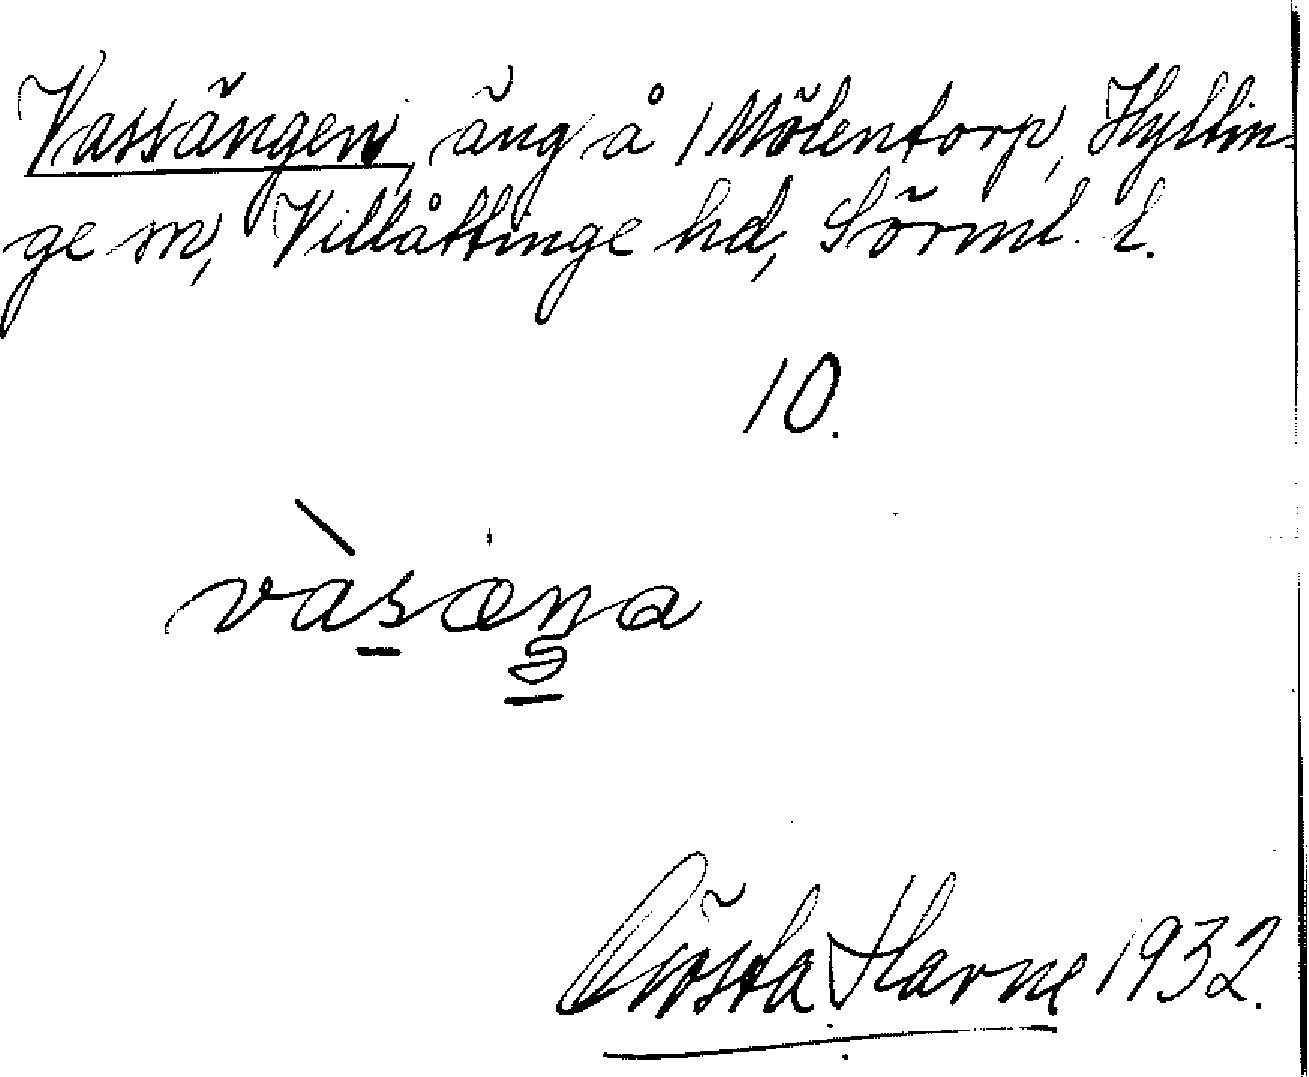 Vassängen, äng å 1 Mölentorp, Hyltin-
ge sn, Villåttinge hd, Sörml. l.
10.
vàsæŋa
Gösta Harne 1932.